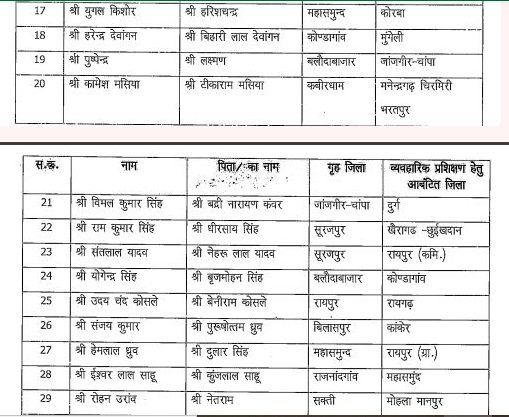 17 श्री युगल किशोर श्री हरिशचन्द्र महासमुन्द कोरबा
18 श्री हरेन्द्र देवांगन श्री बिहारी लाल देवांगन कोण्डागांव मुंगेली
19 श्री पुष्पेन्द्र श्री लक्ष्मण बलौदाबाजार जांजगीर-चांपा
20 श्री कामेश मसिया श्री टीकाराम मसिया कबीरधाम मनेन्द्रगढ़ चिरमिरी
भरतपुर
स.क्र. नाम पिता/ का नाम गृह जिला व्यवहारिक प्रशिक्षण हेतु
आबंटित जिला
21 श्री विमल कुमार सिंह श्री बद्री नारायण कंवर जांजगीर-चांपा दुर्ग
22 श्री राम कुमार सिंह श्री धीरसाय सिंह सूरजपुर खैरागढ -छुईखदान
23 श्री संतलाल यादव श्री नेहरू लाल यादव सूरजपुर रायपुर (कमि.)
24 श्री योगेन्द्र सिंह श्री बृजमोहन सिंह बलौदाबाजार कोण्डागांव
25 श्री उदय चंद कोसले श्री बेनीराम कोसले रायपुर रायगढ़
26 श्री संजय कुमार श्री पुरूषोत्तम ध्रुव बिलासपुर कांकेर
27 श्री हेमलाल ध्रुव श्री दुलार सिंह महासमुन्द रायपुर (ग्रा.)
28 श्री ईश्वर लाल साहू श्री कुंजलाल साहू राजनांदगांव महासमुंद
29 श्री रोहन उरांव श्री नेतराम सक्ती मोहला मानपुर